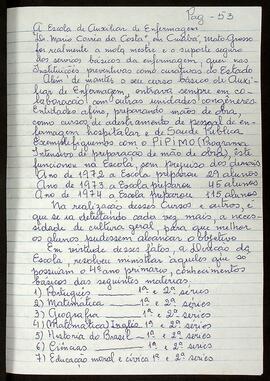 Pag - 53
A Escola de Auxiliar de Enfermagem
"Dr. Mario Corrêa da Costa", em Cuiabá, Mato Grosso
foi realmente a mola mestre e o suporte seguro
dos serviços básicos da enfermagem, quer nas
Instituições preventivas como curativas do Estado
Além de manter o seu curso básico de Auxi-
liar de Enfermagem, entrava sempre em co-
laboração com outras unidades congêneres
Entidades afins, preparando mãos de obra,
como cursos de treinamento de pessoal de en-
fermagem hospitalar e de Saude Pública.
Exemplifiquemos com o PIPIMO (Programa
Intensivo de preparação de mão de obra). Este
funcionou na Escola, sem prejuizo dos alunos
Ano de 1972 a Escola preparou 29 alunos
Ano de 1973 a Escola preparou 45 alunos
Ano de 1974 a Escola preparou 115 alunos
Na realização desses cursos e outros, e
que se ia detectando cada vez mais, a neces-
sidade de cultura geral, para que melhor
os alunos pudessem alcançar o objetivo
Em virtude desses fatos, a direção da
Escola, resolveu ministrar àqueles que só
possuiam o 4º ano primario, conhecimentos
básicos das seguintes materias.
1) Português 1ª e 2ª series
2) Matematica 1ª e 2ª series
3) Geografia 1ª e 2ª series
4) Inglês 1ª e 2ª series
5) Historia do Brasil 1ª e 2ª series
6) Ciências 1ª e 2ª series
7) Educação moral e cívica 1ª e 2ª series